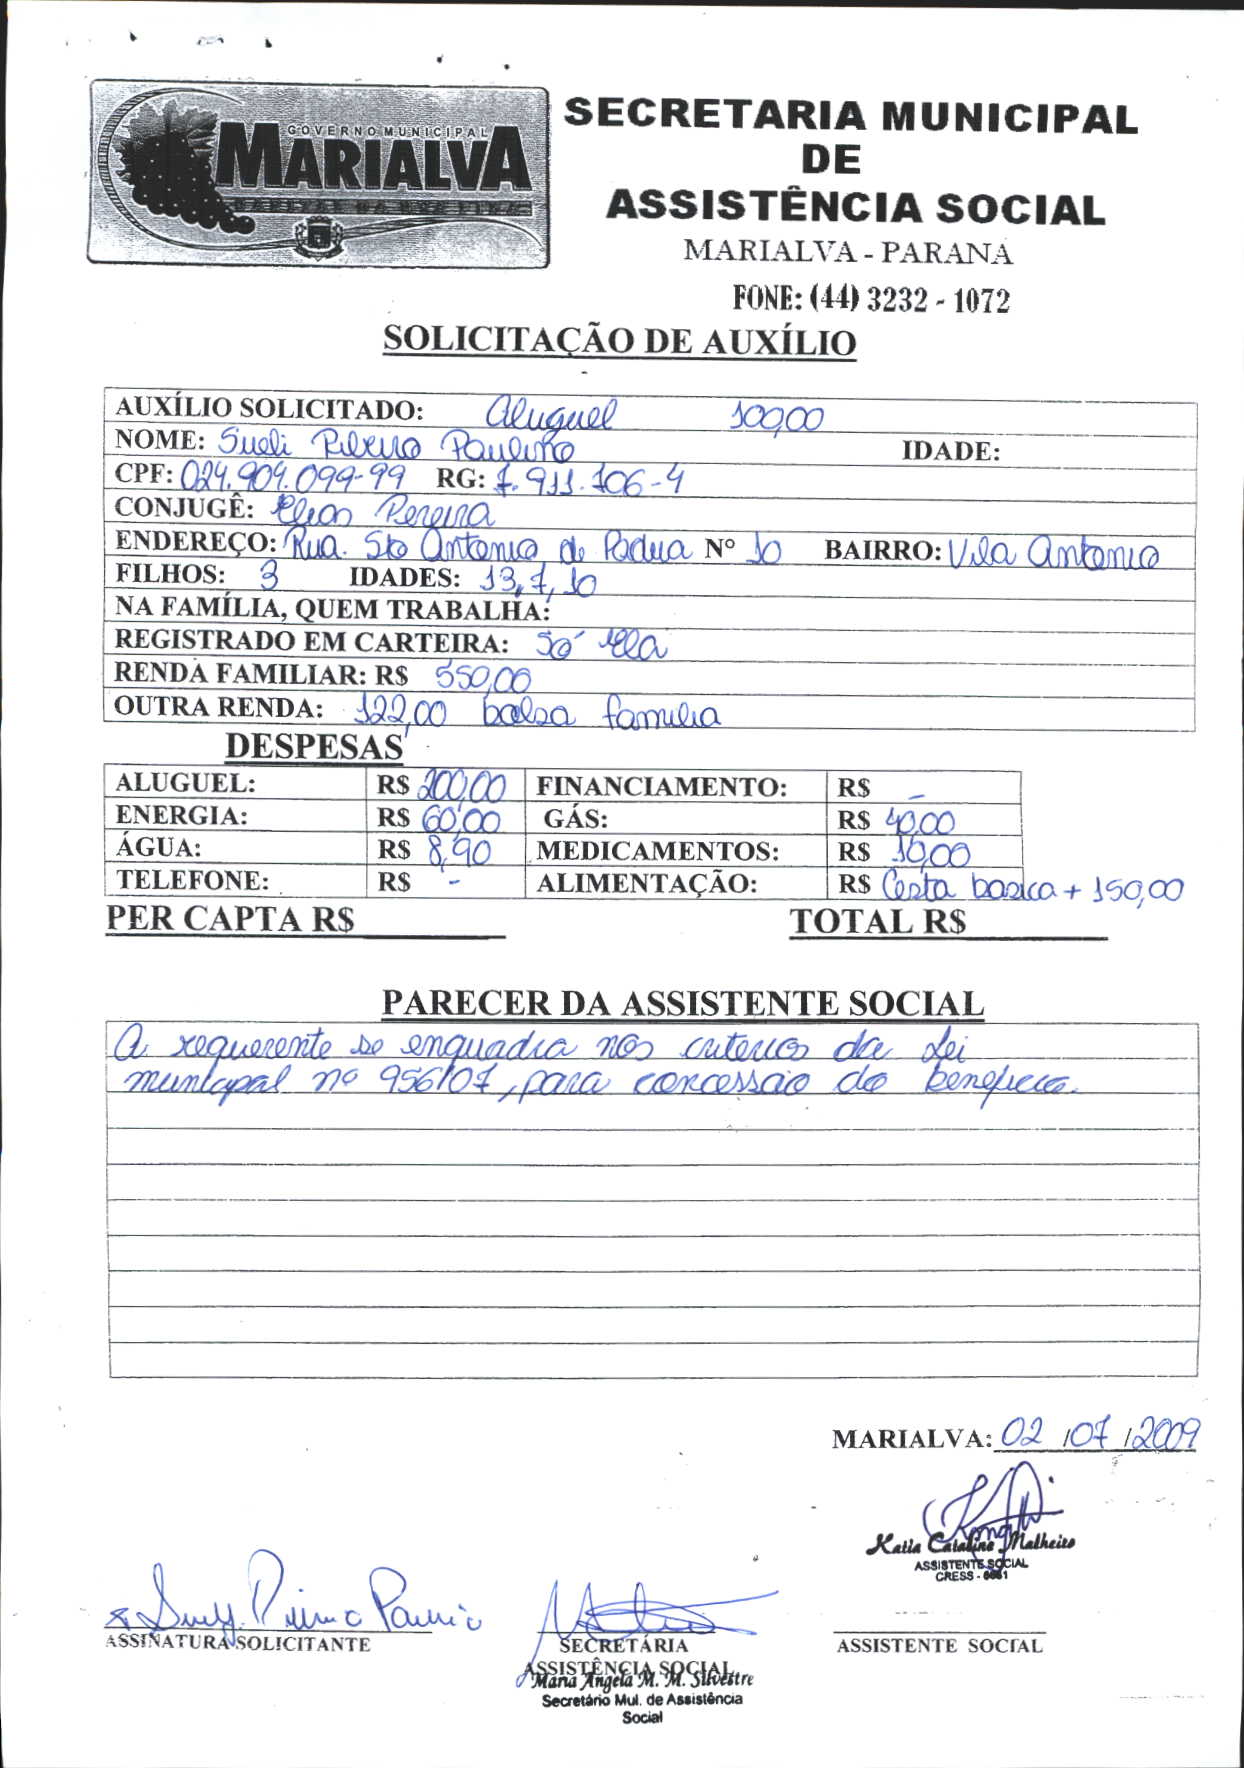 GOVERNO MUNICIPAL
MARIALVA
CAPITAL DA UVA FINA
SECRETARIA MUNICIPAL
DE
ASSISTÊNCIA SOCIAL
MARIALVA - PARANÁ
FONE: (44) 3232 - 1072
SOLICITAÇÃO DE AUXÍLIO
AUXÍLIO SOLICITADO: Aluguel 100,00
NOME: Sueli Ribeiro Paulino IDADE:
CPF: 024.909.099-99 RG: 7.911.106-4
CONJUGÊ: Elias Pereira
ENDEREÇO: Rua. Sto Antonio de Padua N° 10 BAIRRO: Vila Antonio
FILHOS: 3 IDADES: 13, 7, 10
NA FAMÍLIA, QUEM TRABALHA:
REGISTRADO EM CARTEIRA: Só Ela
RENDA FAMILIAR: R$ 550,00
OUTRA RENDA: 122,00 bolsa familia
DESPESAS
ALUGUEL: R$ 200,00 FINANCIAMENTO: R$ -
ENERGIA: R$ 60,00 GÁS: R$ 40,00
ÁGUA: R$ 8,90 MEDICAMENTOS: R$ 10,00
TELEFONE: R$ - ALIMENTAÇÃO: R$ Cesta basica + 150,00
PER CAPTA R$ TOTAL R$
PARECER DA ASSISTENTE SOCIAL
A requerente se enquadra nos criterios da Lei
municipal nº 956/07, para concessão do beneficio.
MARIALVA: 02 /07 /2009
Katia Catalina Malheiro
ASSISTENTE SOCIAL
CRESS -
ASSINATURA SOLICITANTE
SECRETÁRIA
ASSISTÊNCIA SOCIAL
Maria Angela M. M. Silvestre
Secretário Mul. de Assistência
Social
ASSISTENTE SOCIAL